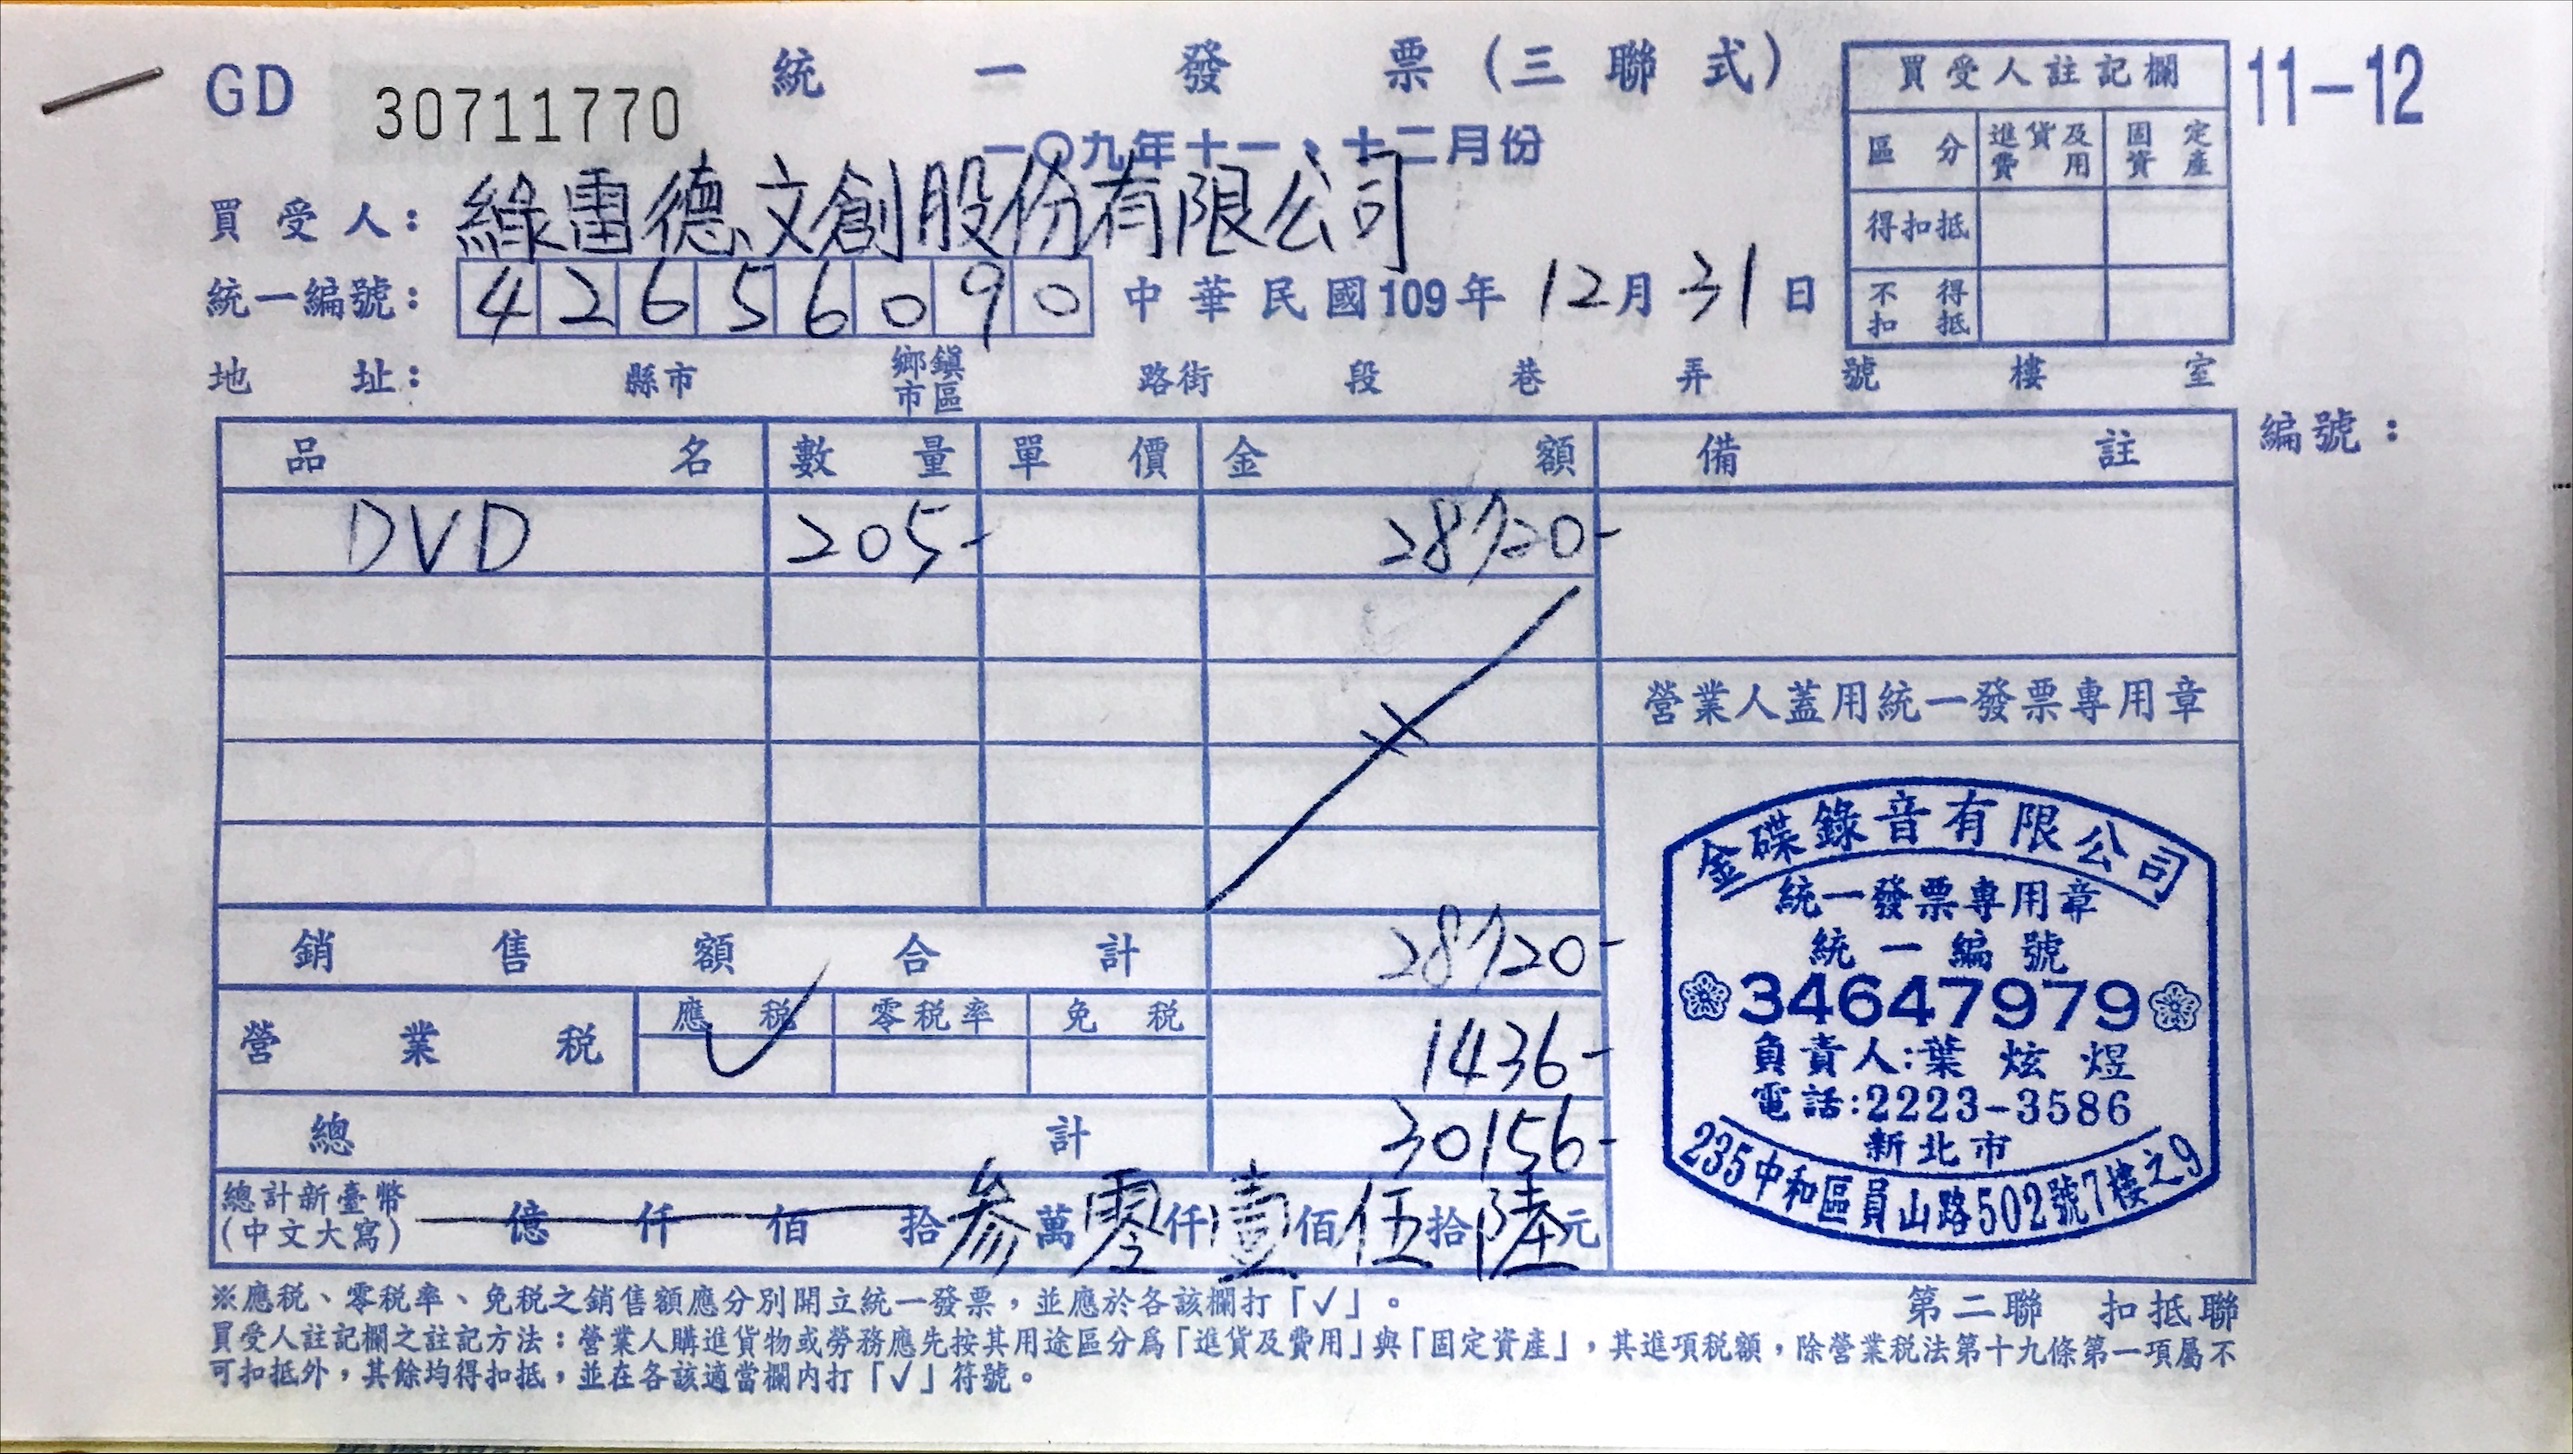 GD 30711770 統一發票(三聯式) 11-12
一〇九年十一、十二月份
買受人註記欄
區分 進貨及費用 固定資產
得扣抵
不得扣抵
買受人: 綠雷德文創股份有限公司
統一編號: 42656090 中華民國109年12月31日
地址: 縣市 鄉鎮市區 路街 段 巷 弄 號 樓 室
品名 數量 單價 金額 備註 編號:
DVD 205- 28720-
營業人蓋用統一發票專用章
銷售額合計 28720-
營業稅 應稅 ✓ 零稅率 免稅 1436-
總計 30156-
總計新臺幣(中文大寫) 億仟佰拾參萬零仟壹佰伍拾陸元
金碟錄音有限公司
統一發票專用章
統一編號
34647979
負責人:葉炫煜
電話:2223-3586
新北市
235中和區員山路502號7樓之9
※應稅、零稅率、免稅之銷售額應分別開立統一發票,並應於各該欄打「✓」。
第二聯 扣抵聯
買受人註記欄之註記方法:營業人購進貨物或勞務應先按其用途區分為「進貨及費用」與「固定資產」,其進項稅額,除營業稅法第十九條第一項屬不
可扣抵外,其餘均得扣抵,並在各該適當欄內打「✓」符號。